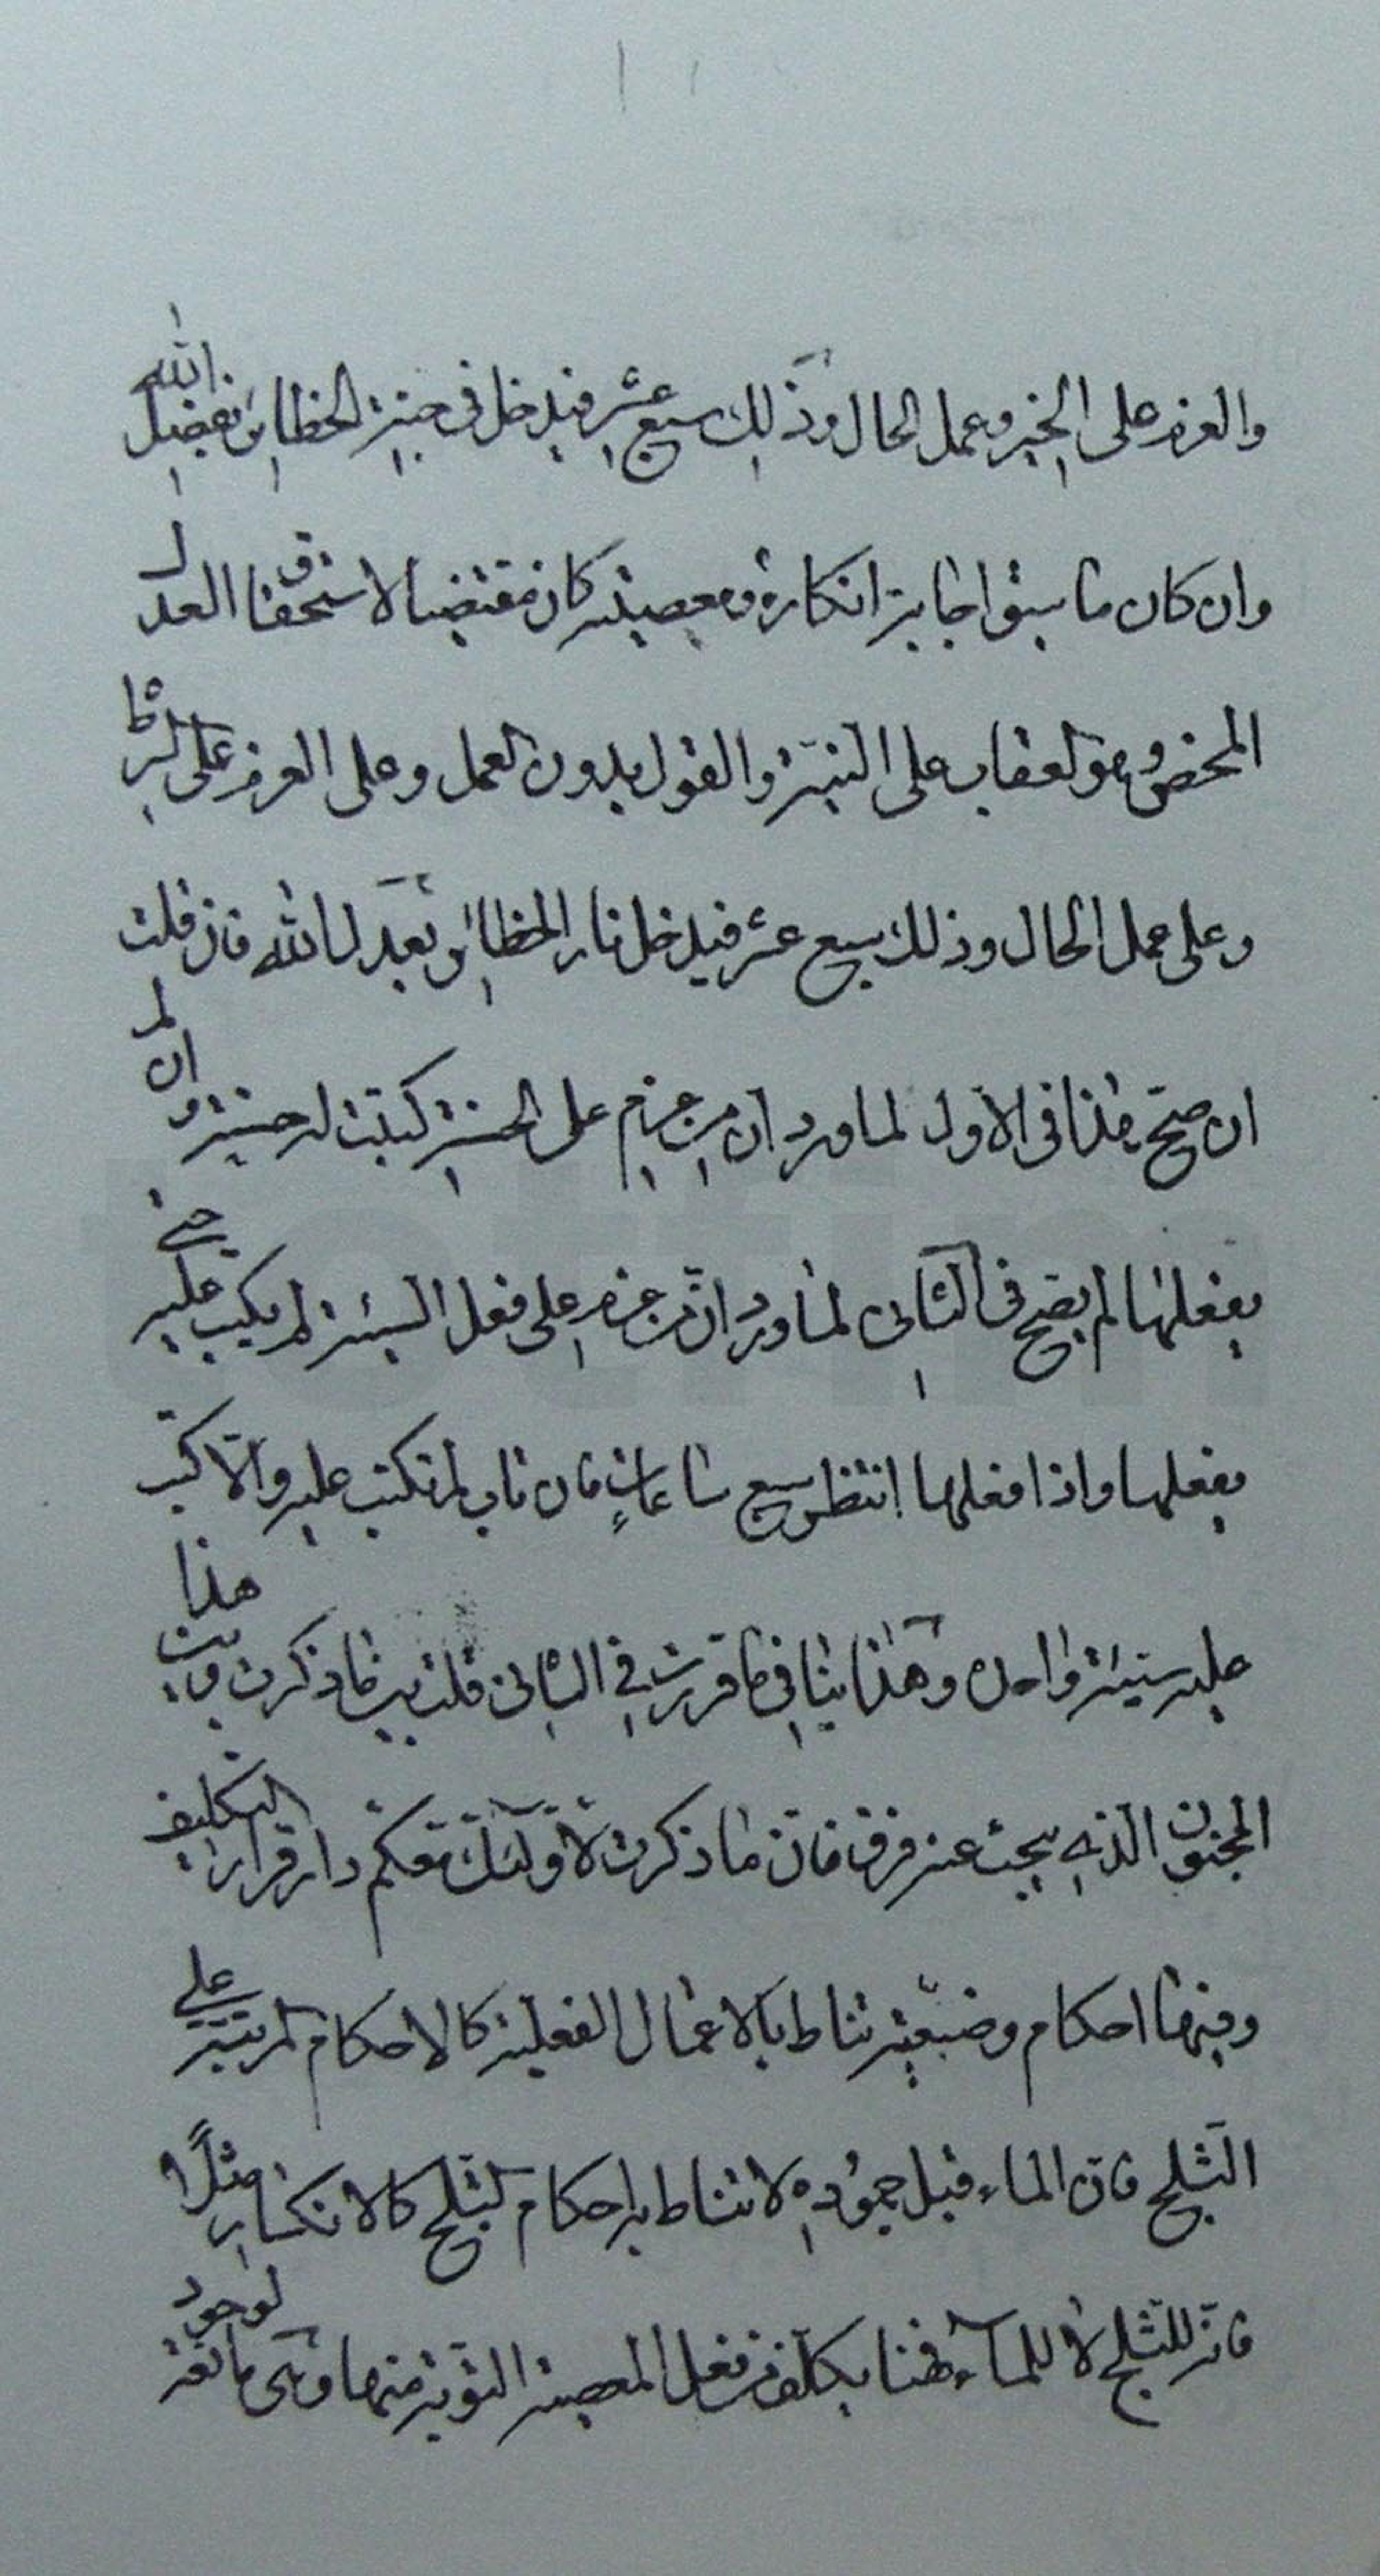 والعزم على الخير وعمل الحال وذلك سبع عشر فيدخل في جنة الحظاير بفضل الله
وان كان ما سبق اجابة انكاره ومعصيته كان مقتضيا لاستحقاق العدل
المحض وهو العقاب على النية والقول بدون العمل وعلى العزم على الشر
وعلى عمل الحال وذلك سبع عشر فيدخل نار الحظائر بعدل الله فان قلت
ان صحّ هذا في الاول لما ورد ان من عزم على الحسنة كتبت له حسنة وان لم
يفعلها لم يصح في الثاني لما ورد ان من عزم على فعل السيئة لم يكتب عليه حتى
يفعلها واذا فعلها انتظر سبع ساعاتٍ فان تاب لم تكتب عليه والّا كتب
عليه سيئة واحدة وهذا ينافي ما قررت في الثاني قلت بين ما ذكرت وبين هذا
المجنون الذي يبحث عنه فرق فانّ ما ذكرت لاولئك معكم دار قرار التكليف
وفيها احكام وضعيّة تناط بالاعمال الفعلية كالاحكام المرتبة على
الثلج فان الماء قبل جموده لا تناط به احكام الثلج كالانكسار مثلًا
فانه للثلج لا للماء فهنا يكلف من فعل المعصية التوبة منها وهي مانعة لوجود